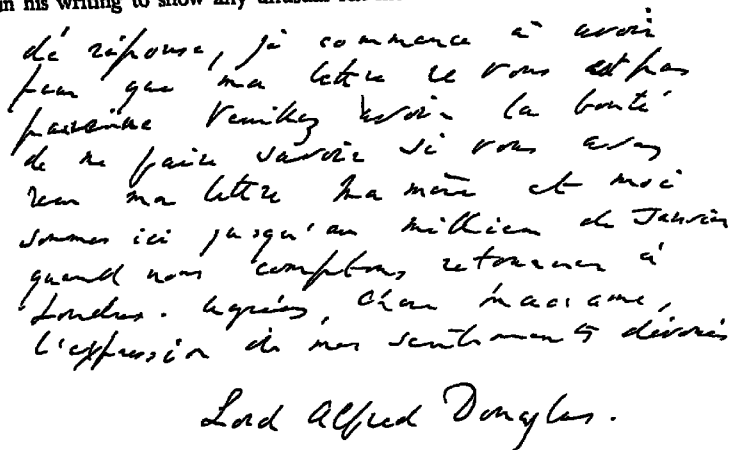 in his writing to show any unusual
dé réponse, je commence à avoir
peur que ma lettre ne vous est pas
parvenue Veuillez avoir la bonté
de me faire savoir si vous avez
reçu ma lettre Ma mère et moi
sommes ici jusqu'au millieu de Janvier
quand nous comptons retourner à
Londres. Agréez, Chere Madame,
l'expression de mes sentiments dévoués
Lord Alfred Douglas.